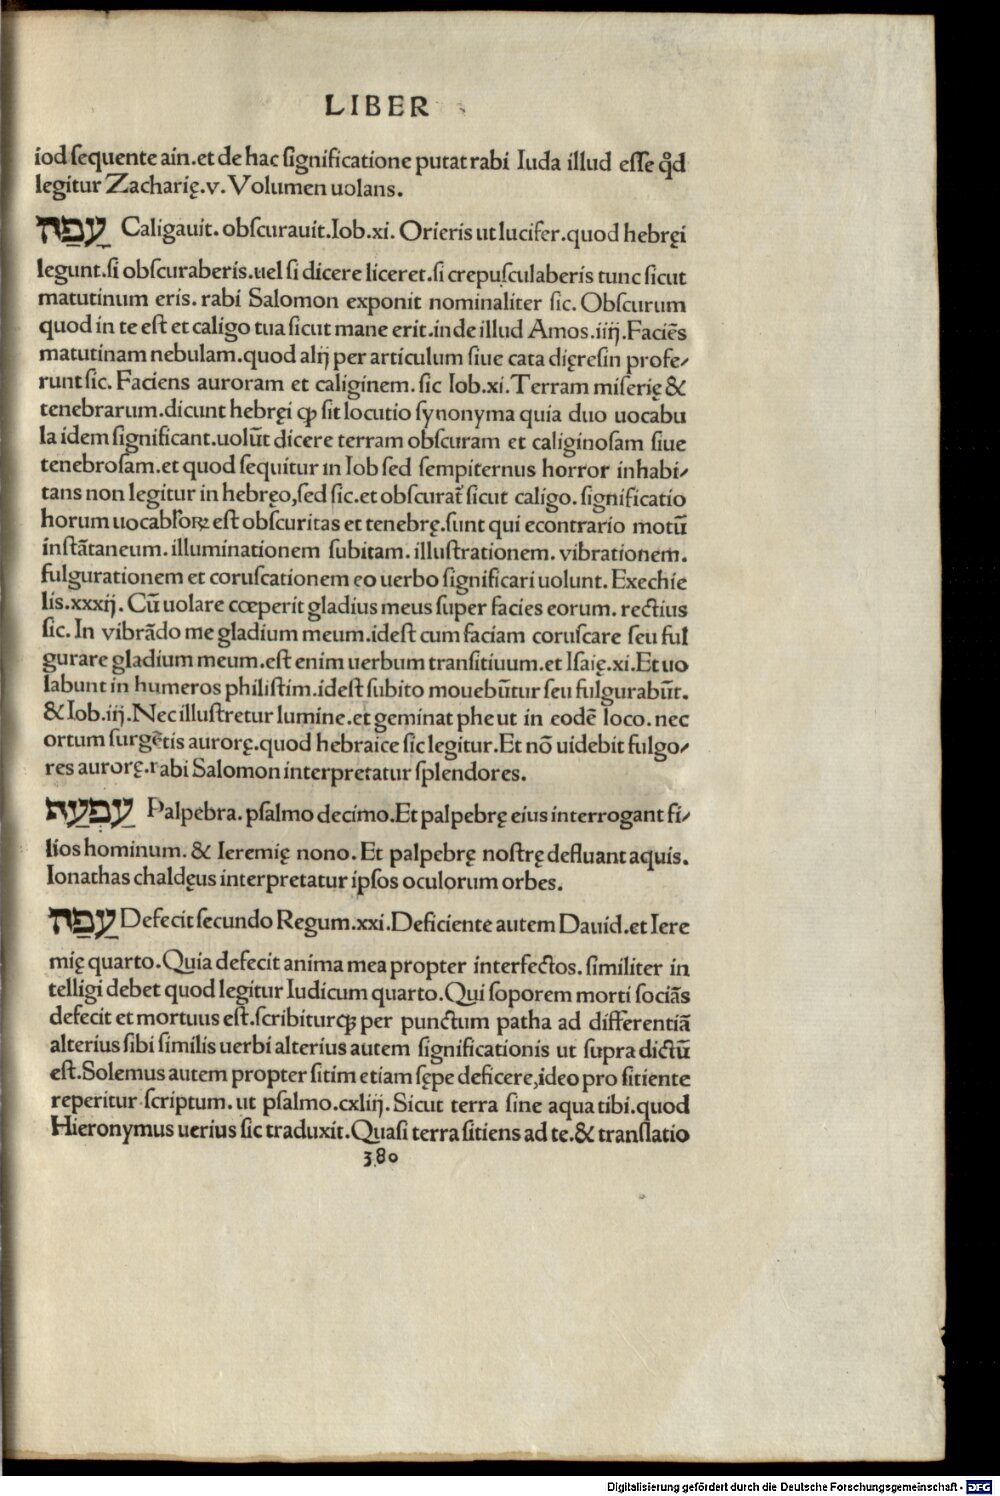 LIBER
iod ſequente ain.et de hac ſignificatione putat rabi Iuda illud eſſe qd̉
legitur Zacharię.v.Volumen uolans.
עָפַה Caligauit. obſcurauit.Iob.xi. Orieris ut lucifer.quod hebręi
legunt.ſi obſcuraberis.uel ſi dicere liceret.ſi crepuſculaberis tunc ſicut
matutinum eris. rabi Salomon exponit nominaliter ſic. Obſcurum
quod in te eſt et caligo tua ſicut mane erit.inde illud Amos.iiij.Faciēs
matutinam nebulam.quod alij per articulum ſiue cata dięreſin profe⸗
runt ſic. Faciens auroram et caliginem. ſic Iob.xi.Terram miſerię &
tenebrarum.dicunt hebręi ꝙ ſit locutio ſynonyma quia duo uocabu
la idem ſignificant.uolūt dicere terram obſcuram et caliginoſam ſiue
tenebroſam.et quod ſequitur in Iob ſed ſempiternus horror inhabi⸗
tans non legitur in hebręo,ſed ſic.et obſcurat᷑ ſicut caligo. ſignificatio
horum uocabl̓oꝝ eſt obſcuritas et tenebrę.ſunt qui econtrario motū
inſtātaneum. illuminationem ſubitam. illuſtrationem. vibrationem.
fulgurationem et coruſcationem eo uerbo ſignificari uolunt. Exechie
lis.xxxij. Cū uolare cœperit gladius meus ſuper facies eorum. rectius
ſic. In vibrādo me gladium meum.ideſt cum faciam coruſcare ſeu ful
gurare gladium meum.eſt enim uerbum tranſitiuum.et Iſaię.xi.Et uo
labunt in humeros philiſtim.ideſt ſubito mouebūtur ſeu fulgurabūt.
& Iob.iij.Nec illuſtretur lumine.et geminat phe ut in eodē loco. nec
ortum ſurgētis aurorę.quod hebraice ſic legitur.Et nō uidebit fulgo⸗
res aurorę.rabi Salomon interpretatur ſplendores.
עַפְעַה Palpebra. pſalmo decimo.Et palpebrę eius interrogant fi⸗
lios hominum. & Ieremię nono. Et palpebrę noſtrę defluant aquis.
Ionathas chaldęus interpretatur ipſos oculorum orbes.
עַפַה Defecit ſecundo Regum.xxi.Deficiente autem Dauid.et Iere
mię quarto.Quia defecit anima mea propter interfectos. ſimiliter in
telligi debet quod legitur Iudicum quarto.Qui ſoporem morti ſociās
defecit et mortuus eſt.ſcribiturqꝫ per punctum patha ad differentiā
alterius ſibi ſimilis uerbi alterius autem ſignificationis ut ſupra dictū
eſt.Solemus autem propter ſitim etiam ſępe deficere,ideo pro ſitiente
reperitur ſcriptum. ut pſalmo.cxliij. Sicut terra ſine aqua tibi.quod
Hieronymus uerius ſic traduxit.Quaſi terra ſitiens ad te.& tranſlatio
380
Digitalisierung gefördert durch die Deutsche Forschungsgemeinschaft - DFG